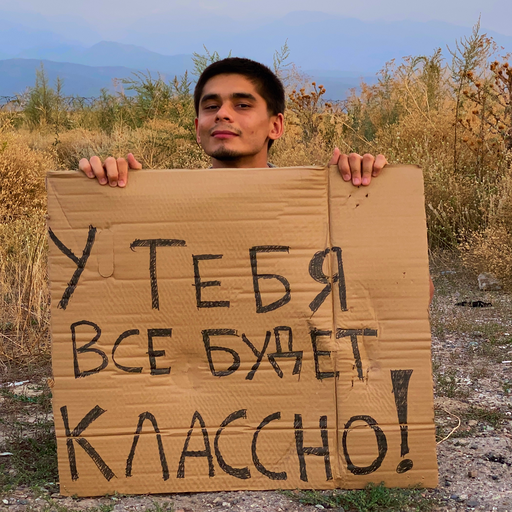 У ТЕБЯ
ВСЕ БУДЕТ
КЛАССНО!